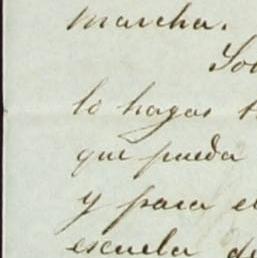 marcha.
lo hagas
que pueda
y para el
escuela de